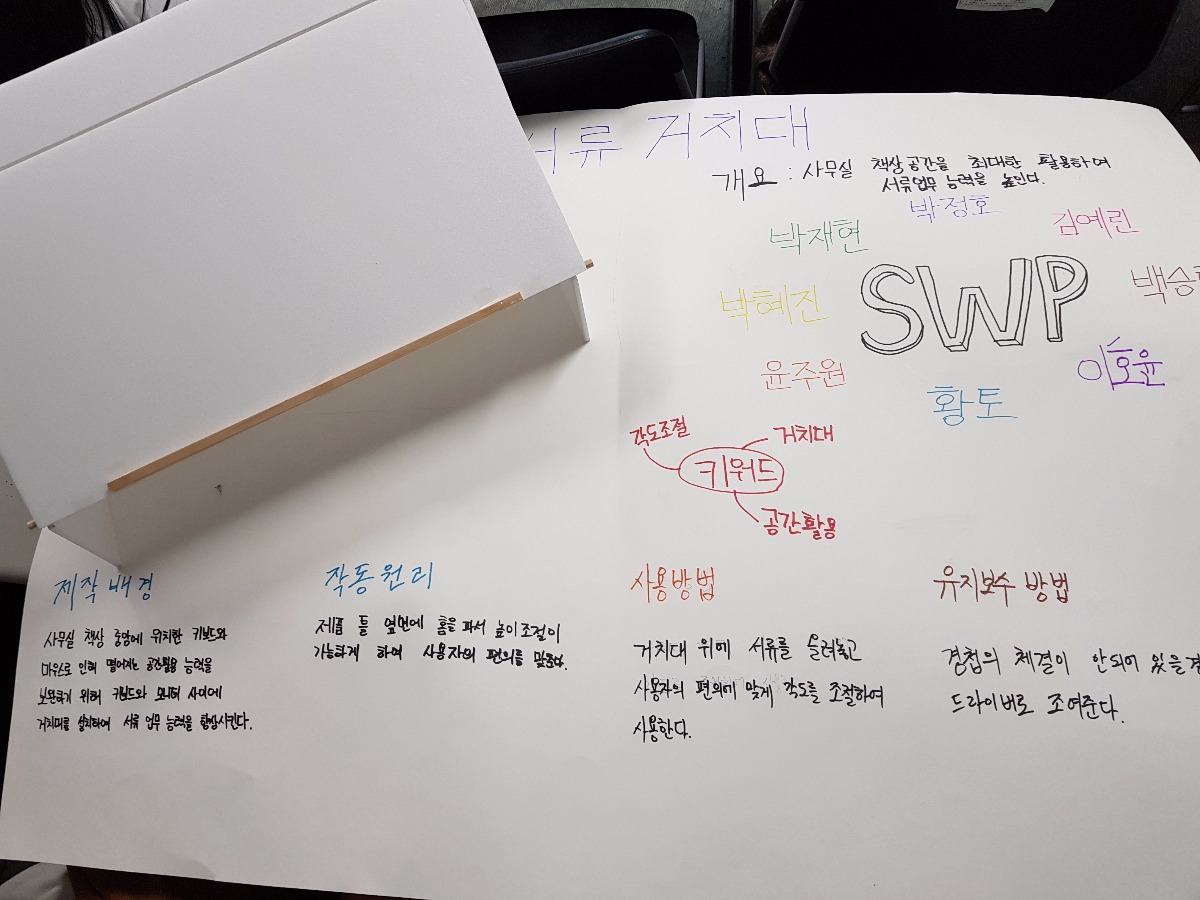 서류 거치대
개요 : 사무실 책상공간을 최대한 활용하여
서류업무 능력을 높인다.
박정호
박재현
김예린
박혜진
SWP
백승
윤주원
이호윤
황토
각도조절
거치대
키워드
공간활용
제작배경
사무실 책상 중앙에 위치한 키보드와
마우스로 인해 떨어지는 공간활용 능력을
보완하기 위해 키보드와 모니터 사이에
거치대를 설치하여 서류 업무 능력을 향상시킨다.
작동원리
제품 틀 옆면에 홈을 파서 높이조절이
가능하게 하여 사용자의 편의를 맞춘다.
사용방법
거치대 위에 서류를 올려놓고
사용자의 편의에 맞게 각도를 조절하여
사용한다.
유지보수 방법
경첩의 체결이 안되어 있을
드라이버로 조여준다.